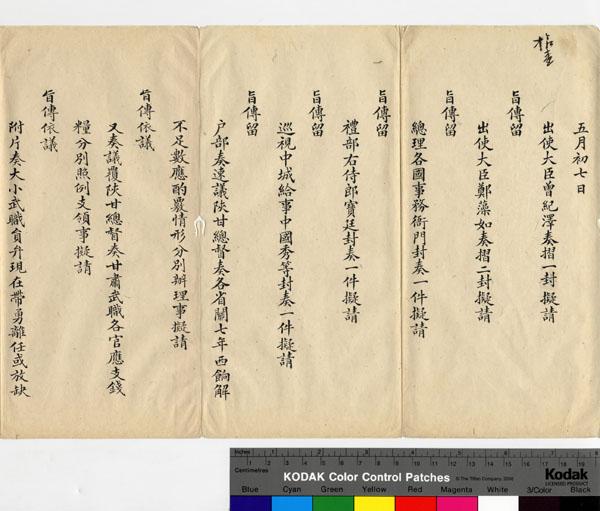 五月初七日
出使大臣曾紀澤奏摺一封擬請
旨傳留
出使大臣鄭藻如奏摺二封擬請
旨傳留
總理各國事務衙門封奏一件擬請
旨傳留
禮部右侍郎寶廷封奏一件擬請
旨傳留
巡視中城給事中國秀等封奏一件擬請
旨傳留
户部奏速議陝甘總督奏各省關七年西餉解
不足數應酌覈情形分別辦理事擬請
旨傳依議
又奏議覆陝甘總督奏甘肅武職各官應支錢
糧分別照例支領事擬請
旨傳依議
附片奏大小武職員弁現在帶勇離任或放缺
Inches
Centimetres
KODAK Color Control Patches
© The Tiffen Company, 2000
Kodak
LICENSED PRODUCT
Blue Cyan Green Yellow Red Magenta White 3/Color Black